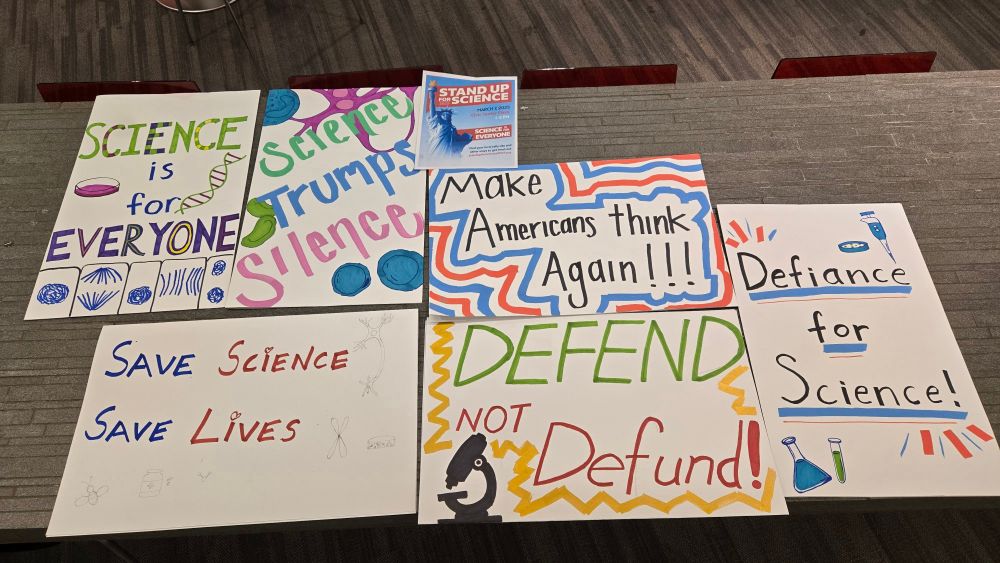 SCIENCE
is
for
EVERYONE
Science
Trumps
Silence
STAND UP
FOR SCIENCE
MARCH 7, 2025
SCIENCE IS FOR
EVERYONE
Make
Americans think
Again!!!
Defiance
for
Science!
SAVE SCIENCE
SAVE LIVES
DEFEND
NOT
Defund!